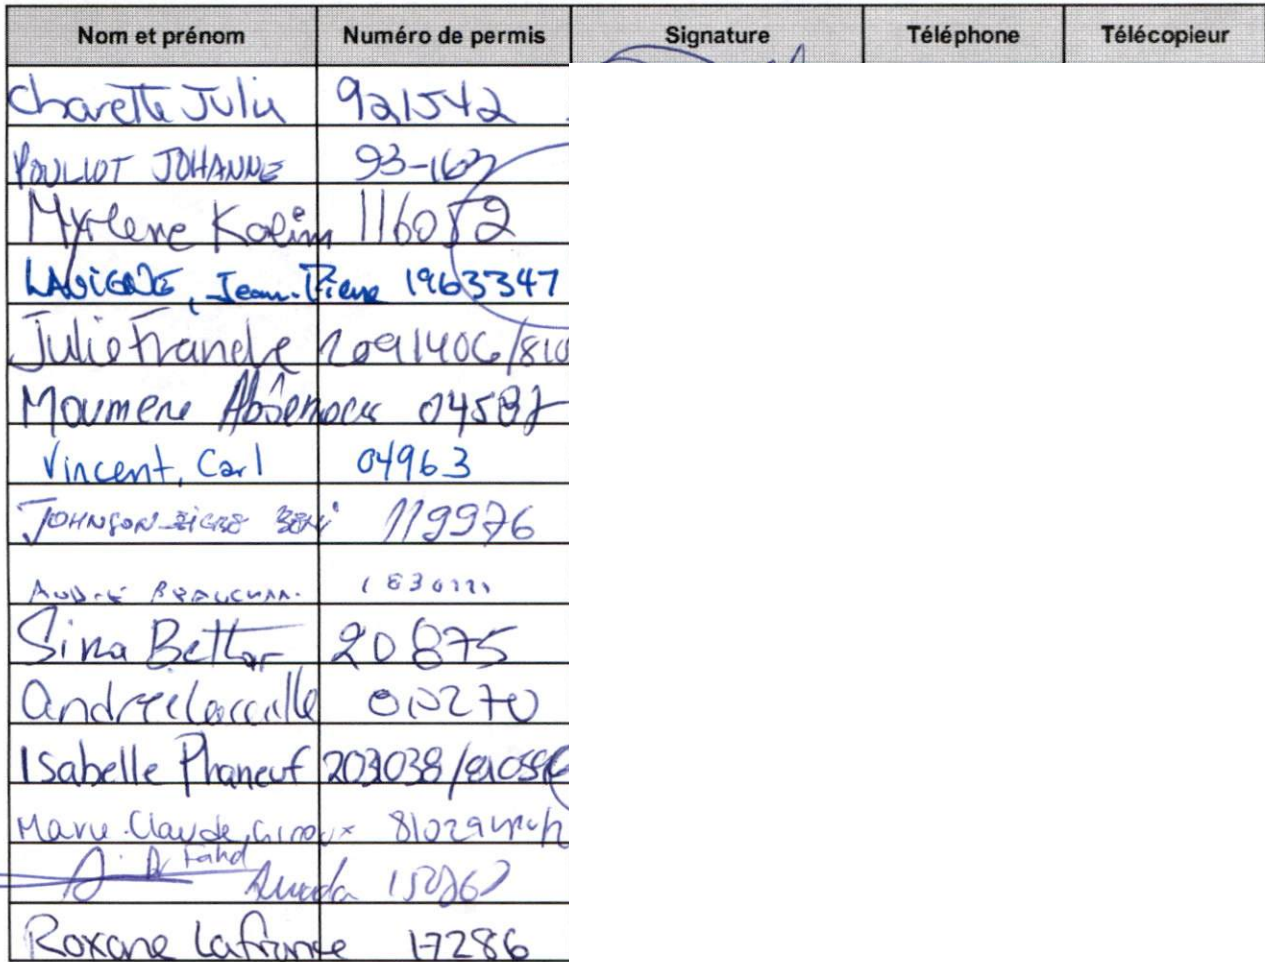 Nom et prénom Numéro de permis Signature Téléphone Télécopieur
Charette Julie 921542
POULIOT JOHANNE 93-163
Myrlene Kaeim 116052
LAVIGNE, Jean-Pierre 1963347
Julie Franche 2091406/810
Moumene 04587
Vincent, Carl 04963
JOHNSON 119976
ANDRÉ BEAUCHAM.
Sina Bettar 20875
Andrée Lacaille
Isabelle Phaneuf 203038/81058
Marie-Claude Giroux 81029
Fahd
Roxane Lafrance 17286